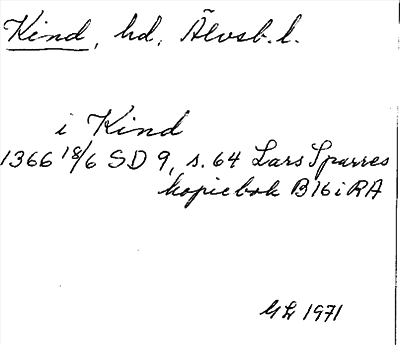 Kind, hd, Älvsb. l.
i Kind
1366 18/6 SD 9, s. 64 Lars Sparres
kopiebok B16 i RA
GL 1971